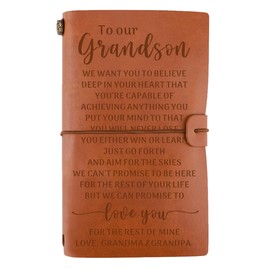 To our
Grandson
WE WANT YOU TO BELIEVE
DEEP IN YOUR HEART THAT
YOU'RE CAPABLE OF
ACHIEVING ANYTHING YOU
PUT YOUR MIND TO THAT
YOU WILL NEVER LOSE
YOU EITHER WIN OR LEARN
JUST GO FORTH
AND AIM FOR THE SKIES
WE CAN'T PROMISE TO BE HERE
FOR THE REST OF YOUR LIFE
BUT WE CAN PROMISE TO
love you
FOR THE REST OF MINE
LOVE, GRANDMA/GRANDPA